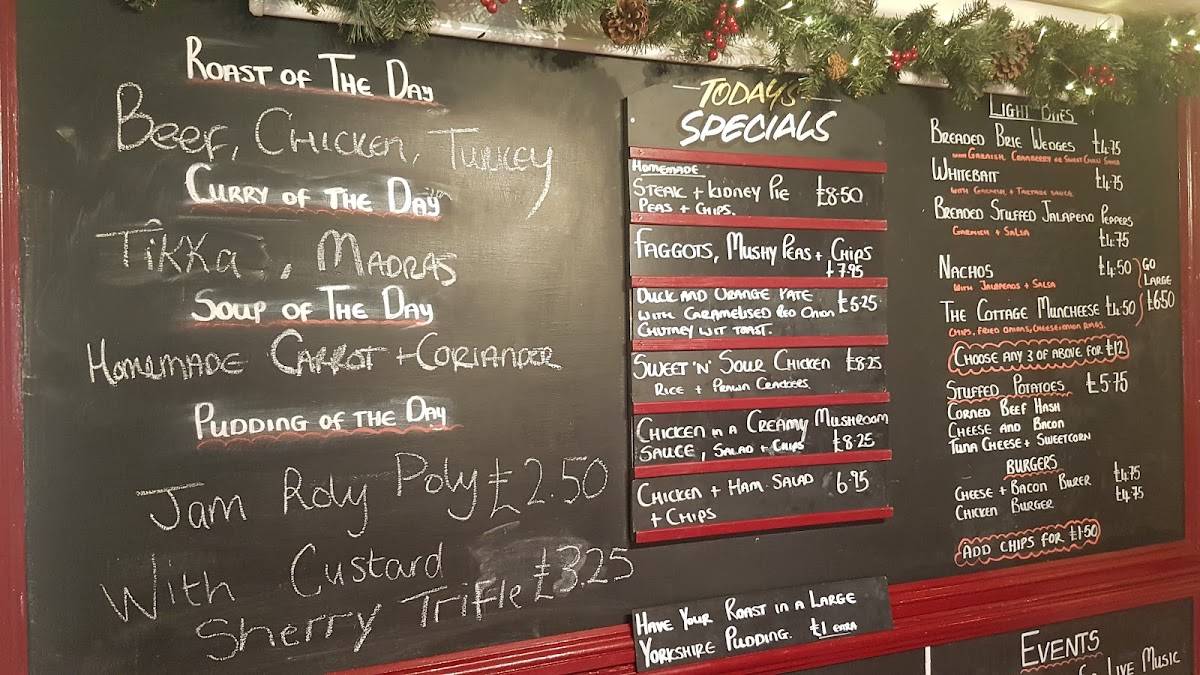 ROAST OF THE DAY
BEEF, CHICKEN, TURKEY
CURRY OF THE DAY
TIKKA, MADRAS
SOUP OF THE DAY
HOMEMADE CARROT + CORIANDER
PUDDING OF THE DAY
Jam Roly Poly £2.50
With Custard
Sherry Trifle £3.25
TODAYS
SPECIALS
HOMEMADE
STEAK + KIDNEY PIE £8.50
PEAS + CHIPS.
FAGGOTS, MUSHY PEAS + CHIPS
£7.95
DUCK AND ORANGE PATE £5.25
WITH CARAMELISED RED ONION
CHUTNEY WIT TOAST.
SWEET 'N' SOUR CHICKEN £8.25
RICE + PRAWN CRACKERS
CHICKEN IN A CREAMY MUSHROOM
SAUCE, SALAD + CHIPS £8.25
CHICKEN + HAM SALAD 6.95
+ CHIPS
HAVE YOUR ROAST IN A LARGE
YORKSHIRE PUDDING. £1 EXTRA
LIGHT BITES
BREADED BRIE WEDGES £4.75
WITH GARNISH, CRANBERRY OR SWEET CHILLI SAUCE
WHITEBAIT £4.75
WITH GARNISH + TARTARE SAUCE
BREADED STUFFED JALAPENO PEPPERS
GARNISH + SALSA £4.75
NACHOS £4.50
WITH JALAPENOS + SALSA
THE COTTAGE MUNCHEESE £4.50
CHIPS, FRIED ONIONS, CHEESE + ONION RINGS.
GO
LARGE
£6.50
CHOOSE ANY 3 OF ABOVE FOR £12
STUFFED POTATOES £5.75
CORNED BEEF HASH
CHEESE AND BACON
TUNA CHEESE + SWEETCORN
BURGERS
CHEESE + BACON BURER £4.75
CHICKEN BURGER £4.75
ADD CHIPS FOR £1.50
EVENTS
LIVE MUSIC